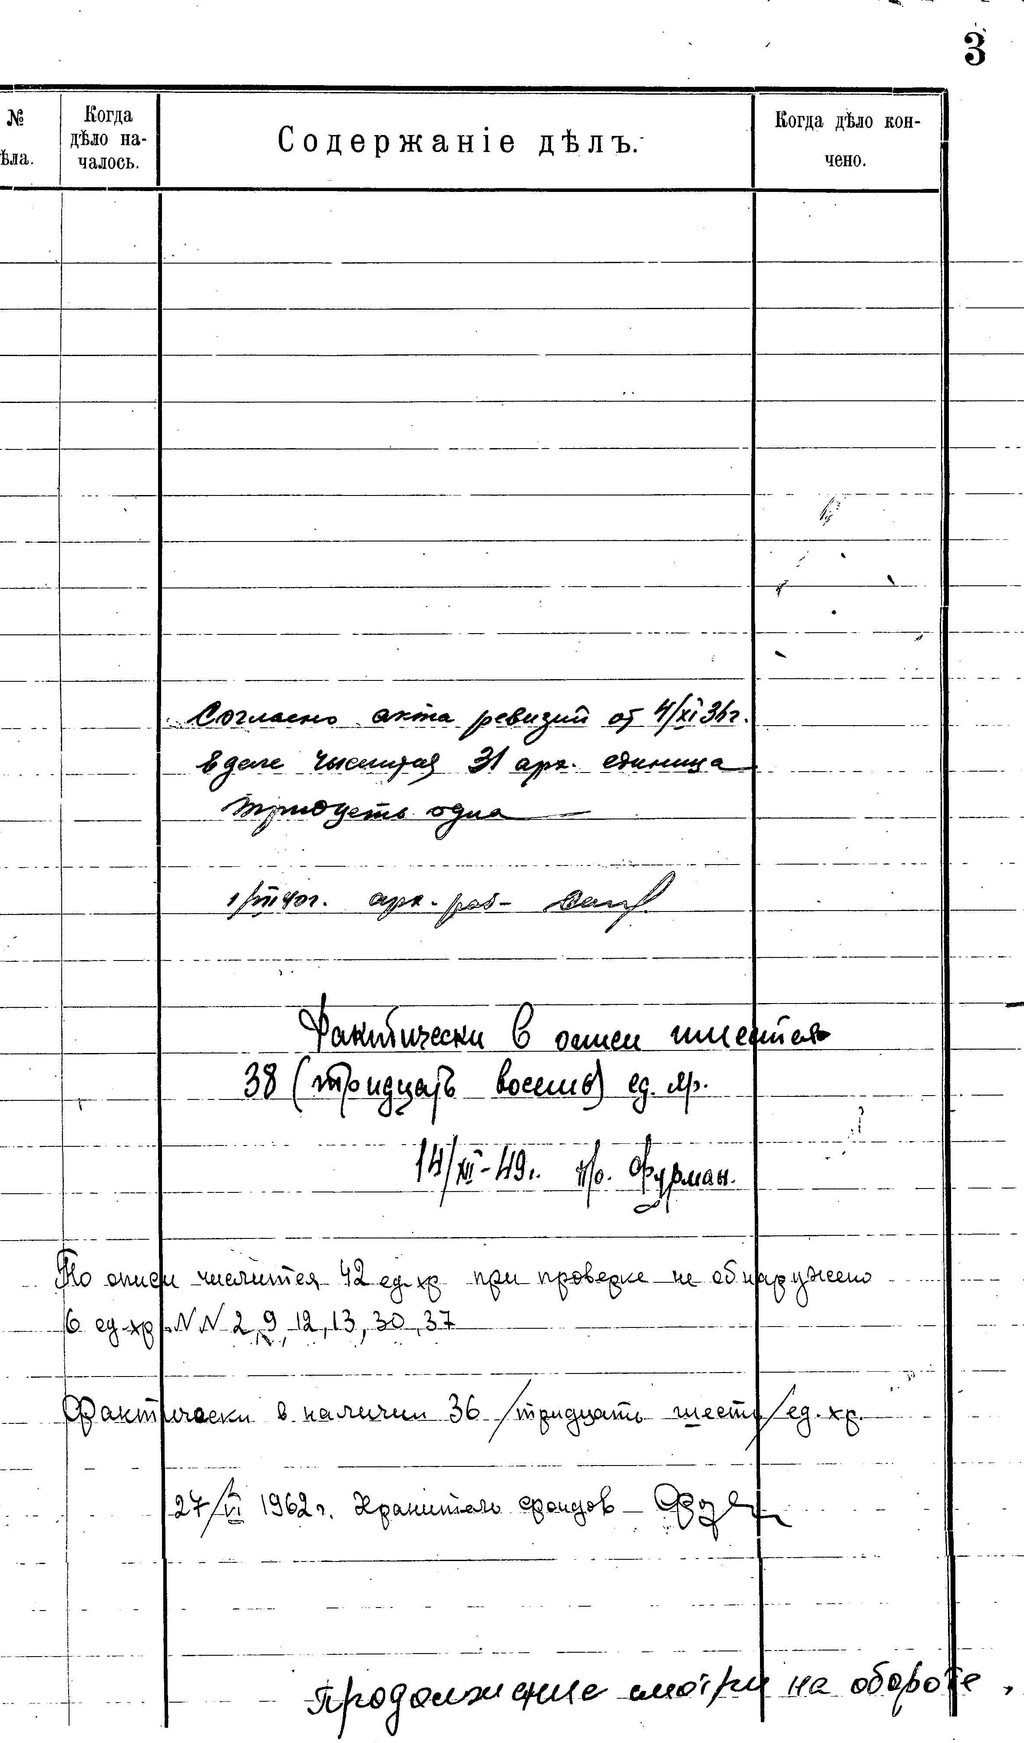 3
№
ѣла.
Когда
дѣло на-
чалось.
Содержаніе дѣлъ.
Когда дѣло кон-
чено.
Согласно акта ревизии от 4/XI 36г.
в деле числится 31 арх. единица
тридцать одна
1/VII 40г. арх. раб-
Фактически в описи имеется
38 (тридцать восемь) ед. хр.
14/XII-49г. н/о. Фурман.
По описи числится 42 ед. хр. при проверке не обнаружено
6 ед-хр. NN 2, 9, 12, 13, 30, 37
Фактически в наличии 36 /тридцать шесть/ ед. хр.
27/VI 1962 г. Хранитель фондов –
Продолжение смотри на обороте.